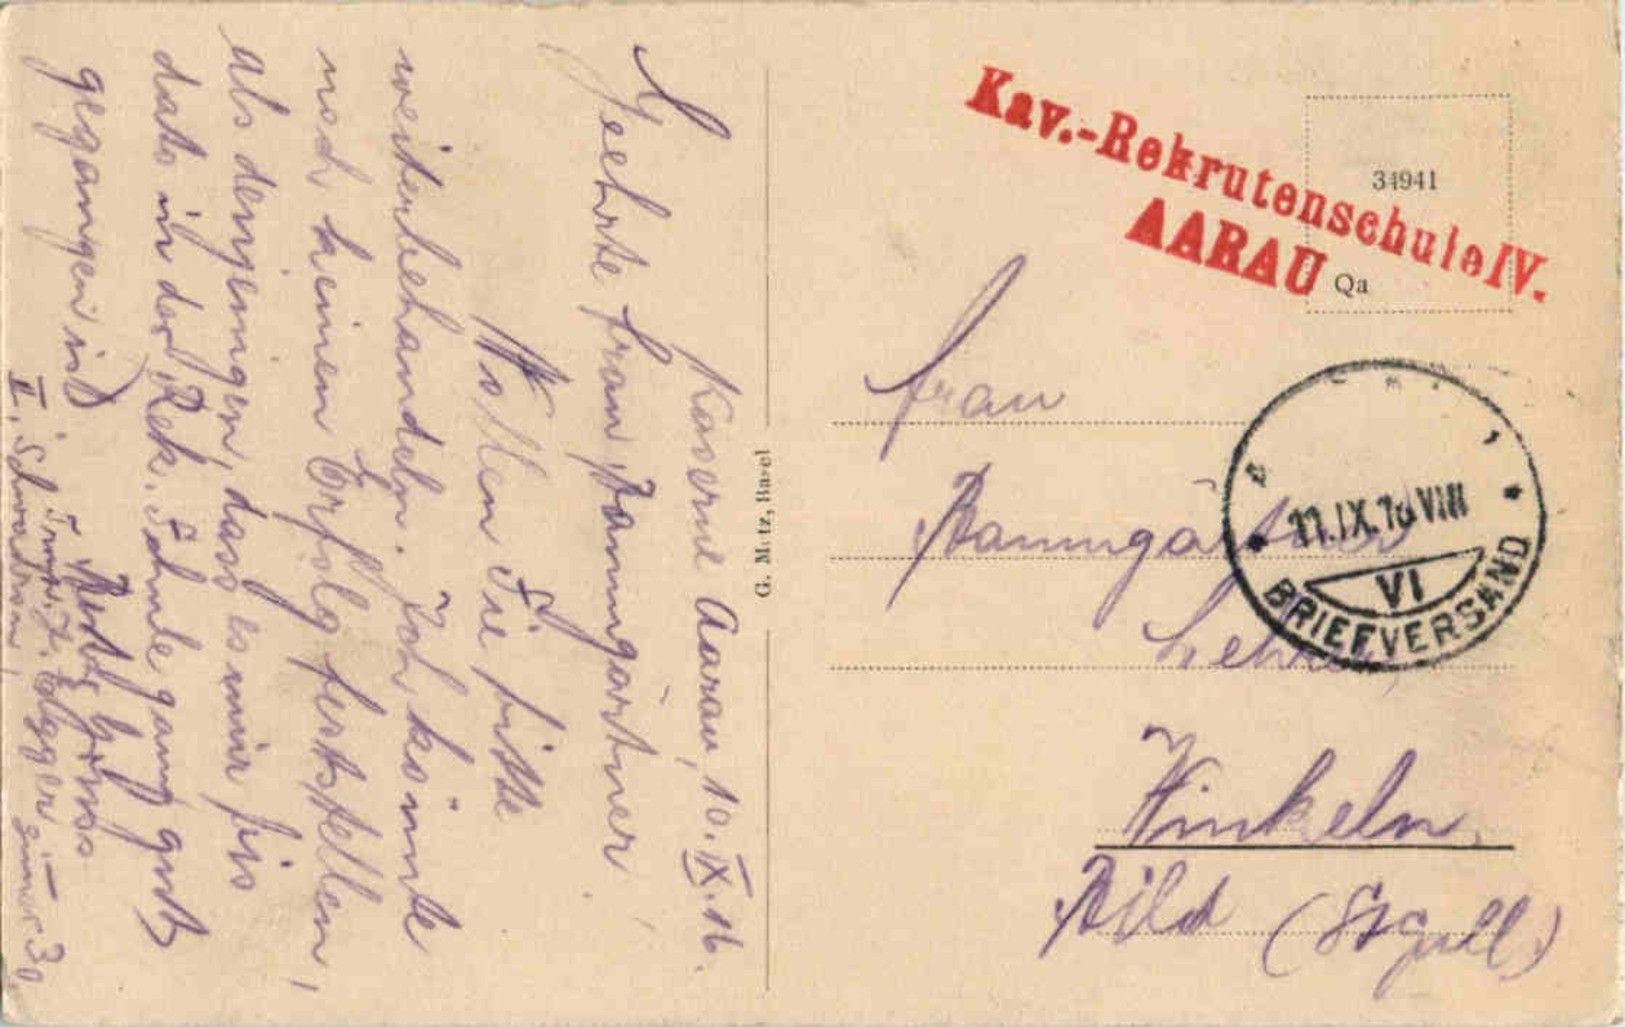 Kaserne Aarau, 10. IX. 16.
Geehrte Frau Baumgärtner
Wollen Sie bitte
weiterbehandeln. Ich könnte
noch keinen Erfolg feststellen,
als denjenigen, dass es mir bis
dato in der Rek. Schule ganz gut
gegangen ist
Besten Gruss
II. Schwadron, Zimmer 30
G. Metz, Basel
Kav.-Rekrutenschule IV.
AARAU
34941
Qa
Frau
Baumgärtner
Winkeln,
Bild (St.gall)
11.IX.16 VIII
VI
BRIEFVERSAND